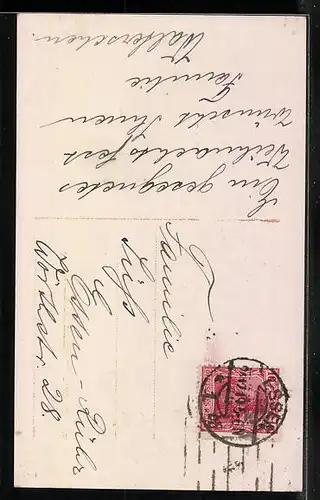 Ein gesegnetes
Weihnachtsfest
wünscht Ihnen
Familie
Familie
Süß
Essen-Ruhr
Wörthstr. 28.